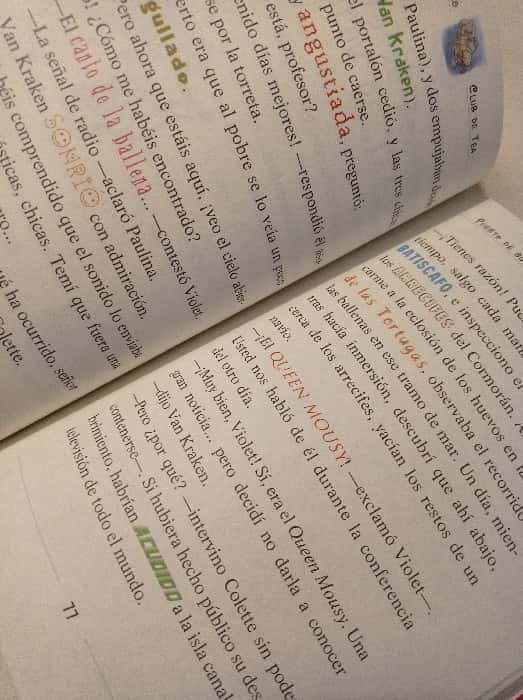 CLUB DE TEA
Paulina), y dos empujaban
Van Kraken).
el portalón cedió, y las tres
punto de caerse.
angustiada, preguntó:
está, profesor?
enido días mejores! —respondió él
se por la torreta.
erto era que al pobre se lo veía un poco
gullado.
Pero ahora que estáis aquí, ¡veo el cielo abier-
! ¿Cómo me habéis encontrado?
—El canto de la ballena... —contestó Violet.
—La señal de radio —aclaró Paulina.
Van Kraken SONRIÓ con admiración.
béis comprendido que el sonido lo enviaba
ásticas, chicas. Temí que fuera una
ro...
ué ha ocurrido, señor
Colette.
—¡Tienes razón!
tiempo, salgo cada
BATISCAFO, e inspecciono
los ARRECIFES del Cormorán.
carme a la eclosión de los huevos en
de las Tortugas, observaba el recorrido
las ballenas en ese tramo de mar. Un día, mien-
tras hacía inmersión, descubrí que ahí abajo,
cerca de los arrecifes, yacían los restos de un
navío.
—¡El QUEEN MOUSY! —exclamó Violet—.
Usted nos habló de él durante la conferencia
del otro día.
—¡Muy bien, Violet! Sí, era el Queen Mousy. Una
gran noticia... pero decidí no darla a conocer
—dijo Van Kraken.
—Pero ¿por qué? —intervino Colette sin poder
contenerse—. Si hubiera hecho público su des
brimiento, habrían ACUDIDO a la isla canal
televisión de todo el mundo.
77